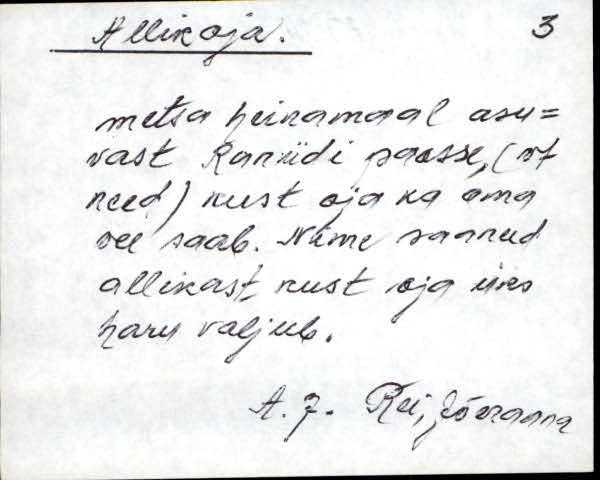 Allikoja. 3
metsa heinamaal asu=
vast Raniidi paosse, (vt
need) kust oja ka oma
vee saab. Nime saanud
allikast kust oja üks
haru väljub.
A. J. Rei, Jõeranna